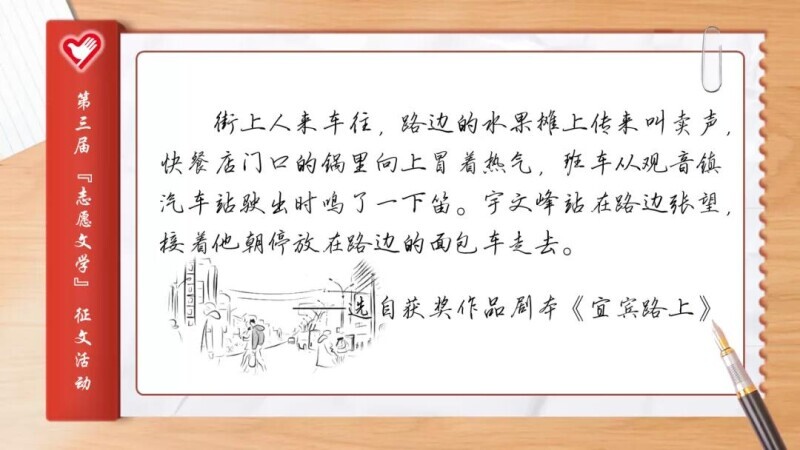 第三届『志愿文学』征文活动
街上人来车往，路边的水果摊上传来叫卖声，
快餐店门口的锅里向上冒着热气，班车从观音镇
汽车站驶出时鸣了一下笛。宇文峰站在路边张望，
接着他朝停放在路边的面包车走去。
选自获奖作品剧本《宜宾路上》